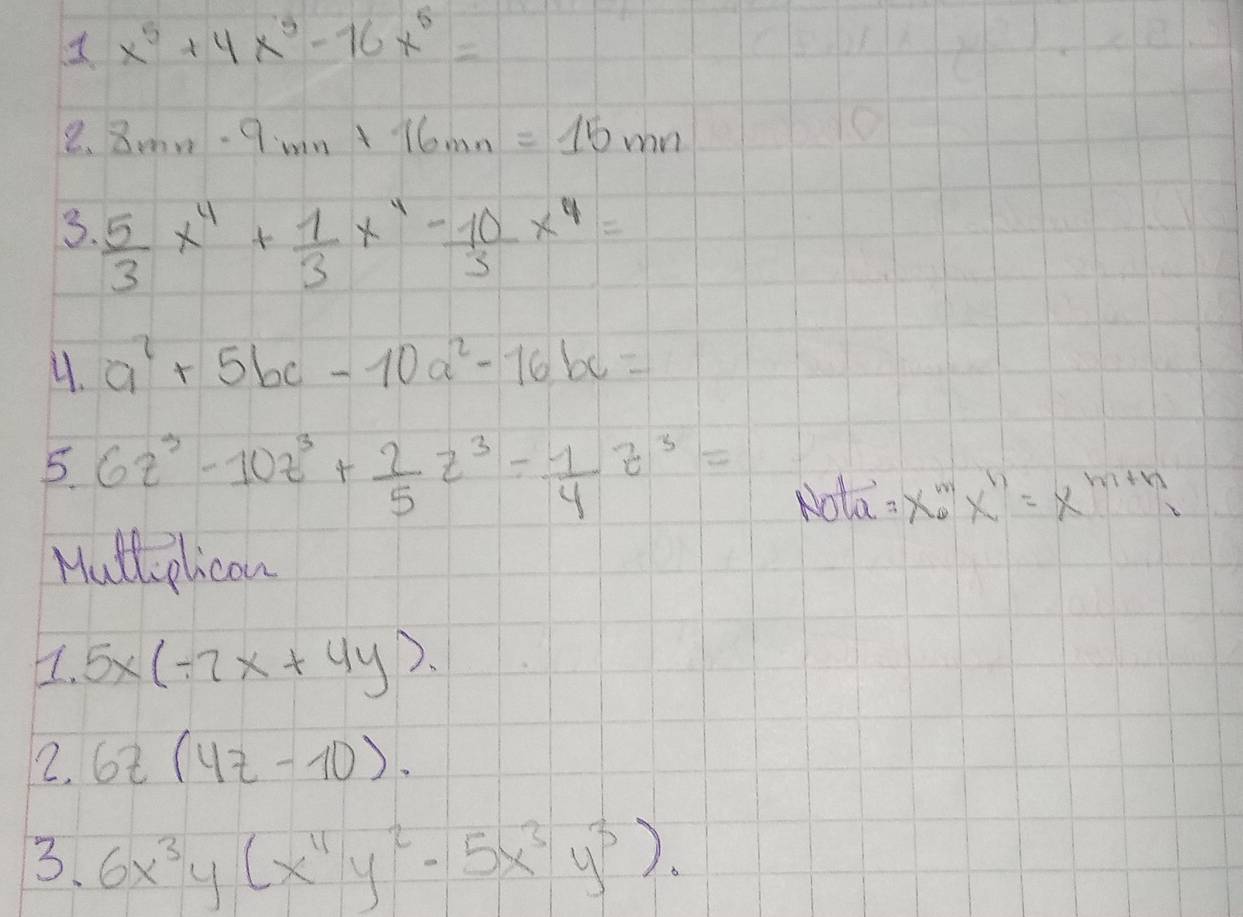 1. x⁵ + 4x⁵ - 16x⁵ =
2. 8mn - 9mn + 16mn = 15mn
3. 5/3 x⁴ + 1/3 x⁴ - 10/3 x⁴ =
4. a² + 5bc - 10a² - 16bc =
5. 6z³ - 10z³ + 2/5 z³ - 1/4 z³ =
Nota: xᵐ · xⁿ = xᵐ⁺ⁿ.
Multiplicar
1. 5x(-2x + 4y).
2. 6z(4z - 10).
3. 6x³y(x⁴y² - 5x³y³).